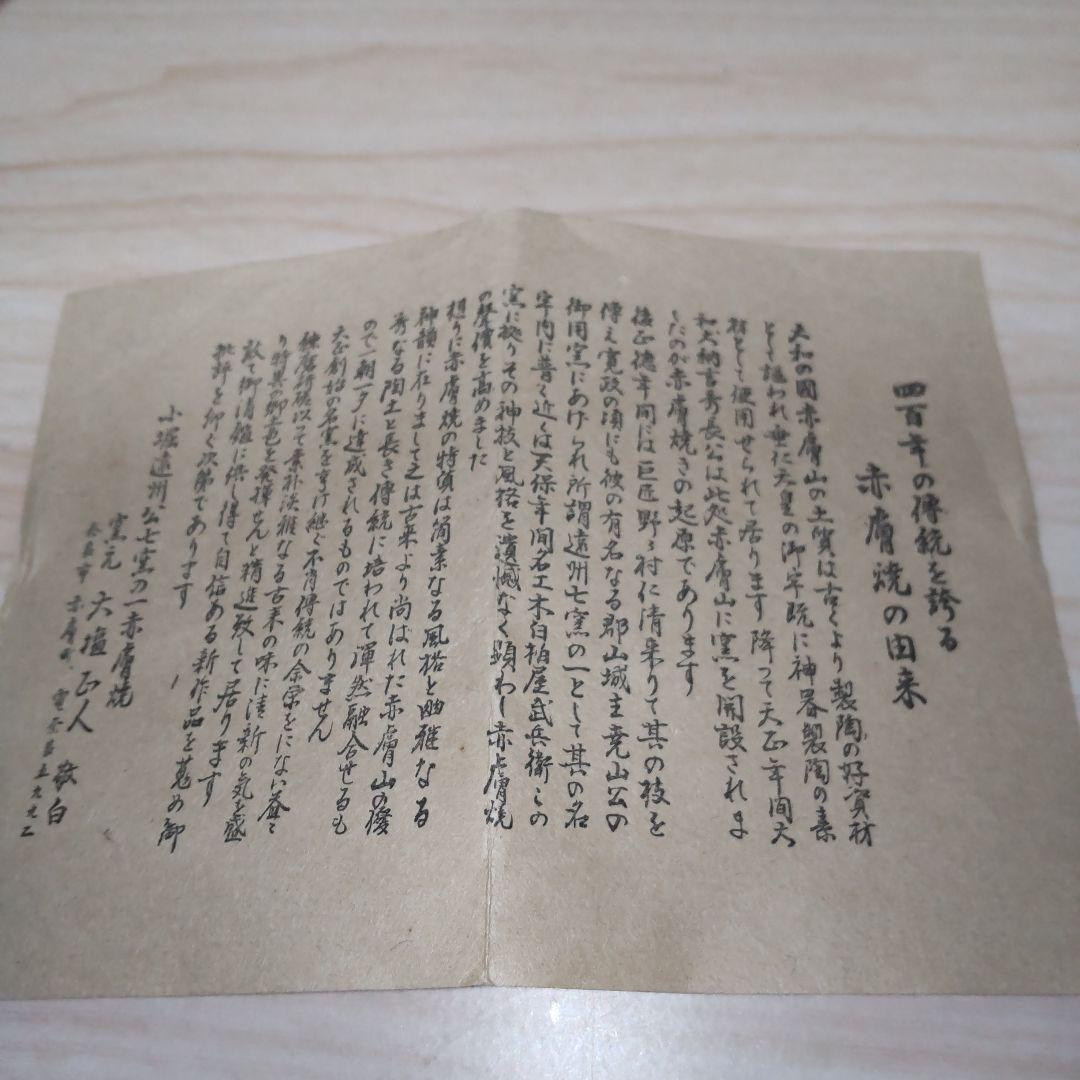 四百年の傳統を誇る
赤膚焼の由来
大和の國赤膚山の土質は古くより製陶の好資材
として謳われ垂仁天皇の御宇既に神器製陶の素
材として使用せられて居ります降つて天正年間大
和大納言秀長公は此処赤膚山に窯を開設されま
したのが赤膚焼きの起原であります
後正徳年間には巨匠野々村仁清来りて其の技を
傳え寛政の頃にも彼の有名なる郡山城主堯山公の
御用窯にあげられ所謂遠州七窯の一として其の名
宇内に普く近くは天保年間名工木白柏屋武兵衛この
窯に拠りその神技と風格を遺憾なく顕わし赤膚焼
の聲價を高めました
想うに赤膚焼の特質は簡素なる風格と幽雅なる
神韻に在りまして之は古来より尚ばれた赤膚山の優
秀なる陶土と長き傳統に培われて渾然融合せるも
ので一朝一夕に達成されるものではありません
天正創始の名窯を享け継ぐ不肖傳統の余栄をにない益々
錬磨研磋以つて素朴淡雅なる古来の味に清新の気を盛
り特異の郷土色を発揮せんと精進致して居ります
敢て御清鑑に供し得て自信ある新作品を蒐め御
批評を仰ぐ次第であります
小堀遠州公七窯の一赤膚焼
窯元 大塩正人 敬白
奈良市 赤膚町 電奈良五九九二